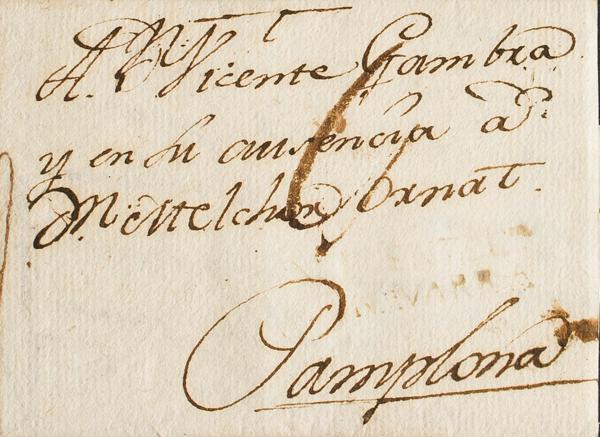 A. Dn. Vicente Gambra
y en su ausencia a
Dn. Melchor Ornat.
Pamplona